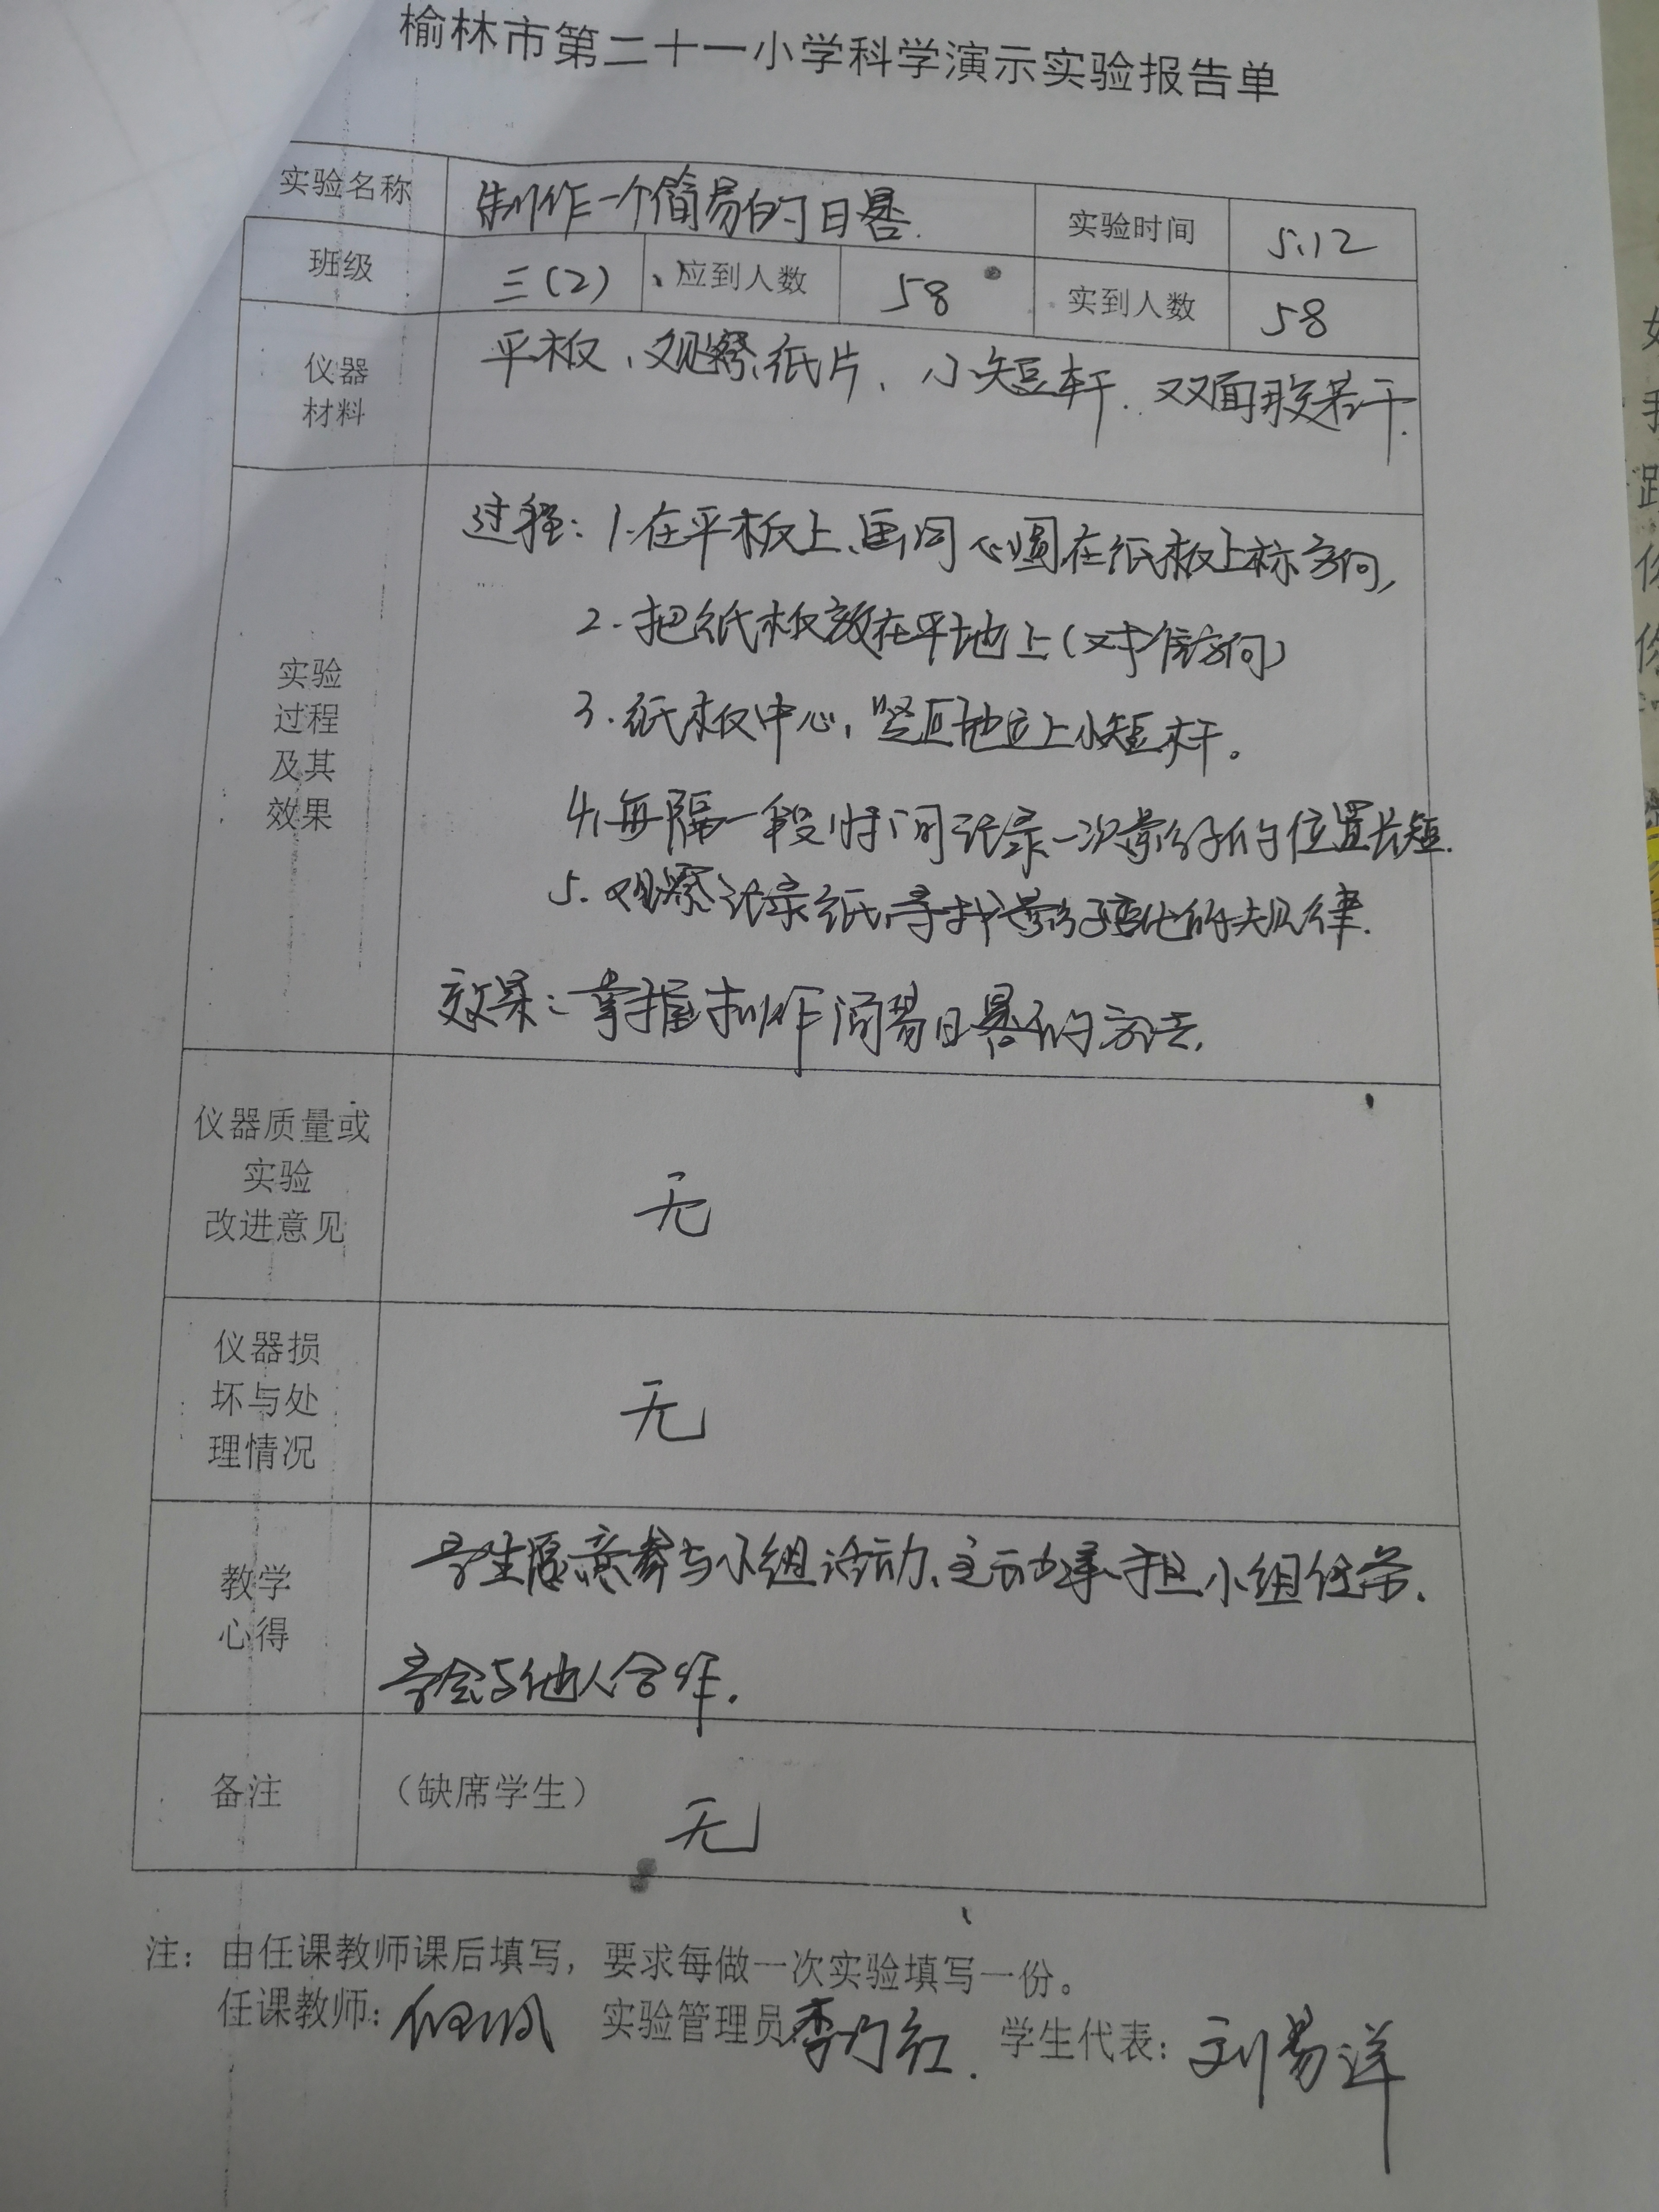 榆林市第二十一小学科学演示实验报告单
实验名称 制作一个简易的日晷. 实验时间 5.12
班级 三(2) 应到人数 58 实到人数 58
仪器
材料
平板、观察纸片、小短杆、双面胶若干.
实验
过程
及其
效果
过程: 1.在平板上、画同心圆在纸板上标方向,
2.把纸板放在平地上(对准方向)
3.纸板中心,竖直地立上小短杆。
4.每隔一段时间记录一次影子的位置长短.
5.观察记录纸,寻找影子变化的规律.
效果:掌握制作简易日晷的方法.
仪器质量或
实验
改进意见
无
仪器损
坏与处
理情况
无
教学
心得
学生愿意参与小组活动、主动承担小组任务.
学会与他人合作.
备注 (缺席学生)
无
注: 由任课教师课后填写, 要求每做一次实验填写一份。
任课教师: 实验管理员 学生代表: 刘易洋